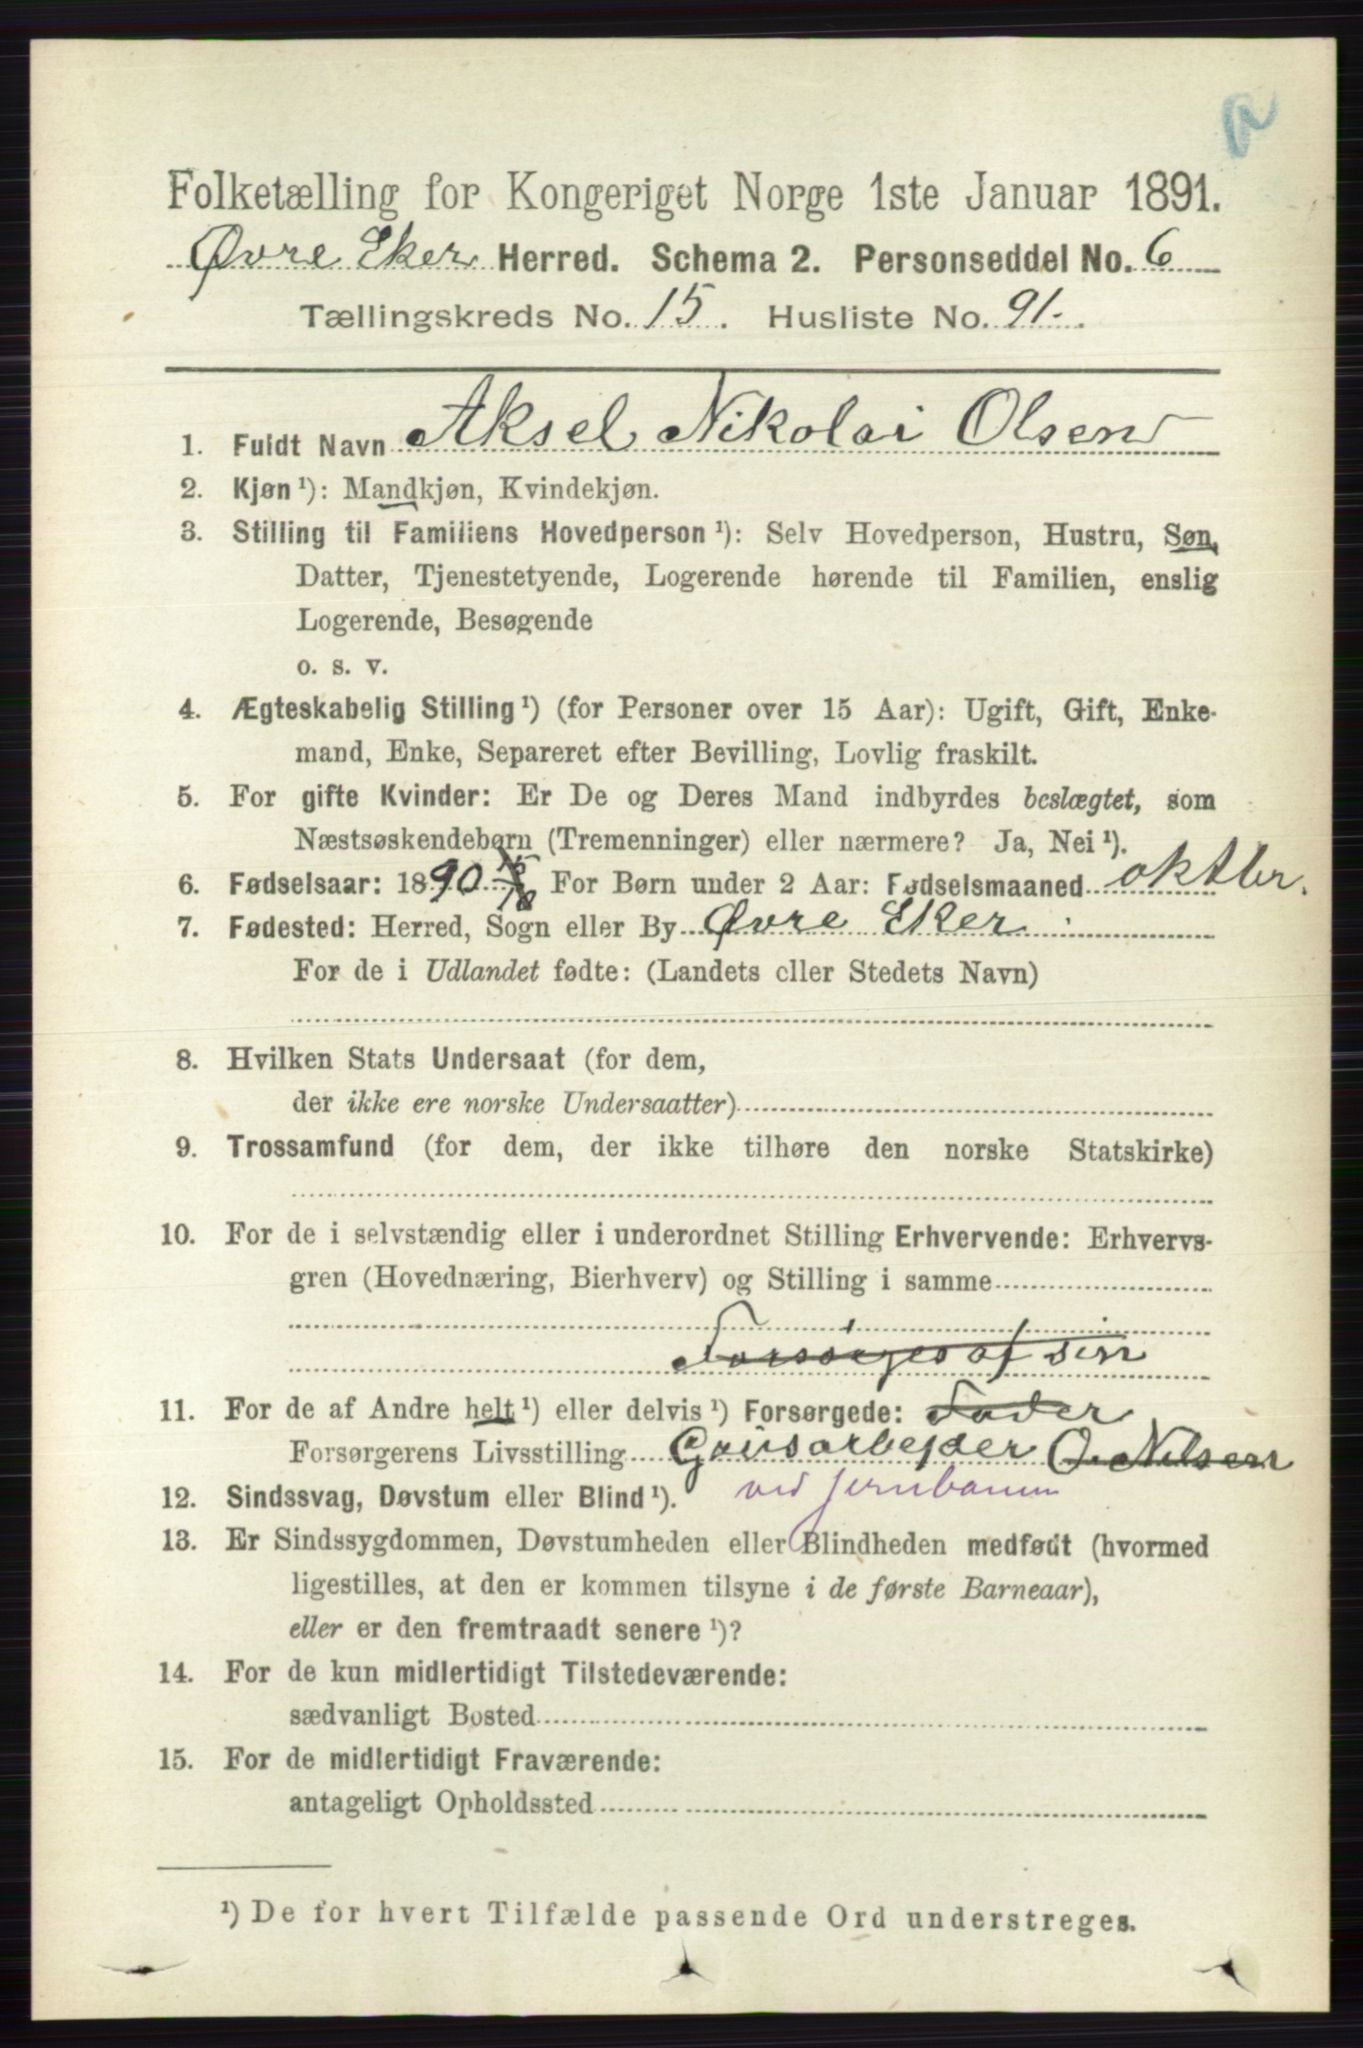 Folketælling for Kongeriget Norge 1ste Januar 1891.
Øvre Eker Herred. Schema 2. Personseddel No. 6
Tællingskreds No. 15. Husliste No. 91.
1. Fuldt Navn Aksel Nikolai Olsen
2. Kjøn ¹): Mandkjøn, Kvindekjøn.
3. Stilling til Familiens Hovedperson ¹): Selv Hovedperson, Hustru, Søn,
Datter, Tjenestetyende, Logerende hørende til Familien, enslig
Logerende, Besøgende
o. s. v.
4. Ægteskabelig Stilling ¹) (for Personer over 15 Aar): Ugift, Gift, Enke-
mand, Enke, Separeret efter Bevilling, Lovlig fraskilt.
5. For gifte Kvinder: Er De og Deres Mand indbyrdes beslægtet, som
Næstsøskendebørn (Tremenninger) eller nærmere? Ja, Nei ¹).
6. Fødselsaar: 1890 For Børn under 2 Aar: Fødselsmaaned oktbr.
7. Fødested: Herred, Sogn eller By Øvre Eker
For de i Udlandet fødte: (Landets cller Stedets Navn)
8. Hvilken Stats Undersaat (for dem,
der ikke ere norske Undersaatter)
9. Trossamfund (for dem, der ikke tilhøre den norske Statskirke)
10. For de i selvstændig eller i underordnet Stilling Erhvervende: Erhvervs-
gren (Hovednæring, Bierhverv) og Stilling i samme
Forsörges af sin
11. For de af Andre helt ¹) eller delvis ¹) Forsørgede: Fader
Forsørgerens Livsstilling Gruisarbejder O. Nilsen
12. Sindssvag, Døvstum eller Blind ¹). ved jernbanen
13. Er Sindssygdommen, Døvstumheden eller Blindheden medfødt (hvormed
ligestilles, at den er kommen tilsyne i de første Barneaar),
eller er den fremtraadt senere ¹)?
14. For de kun midlertidigt Tilstedeværende:
sædvanligt Bosted
15. For de midlertidigt Fraværende:
antageligt Opholdssted
¹) De for hvert Tilfælde passende Ord understreges.